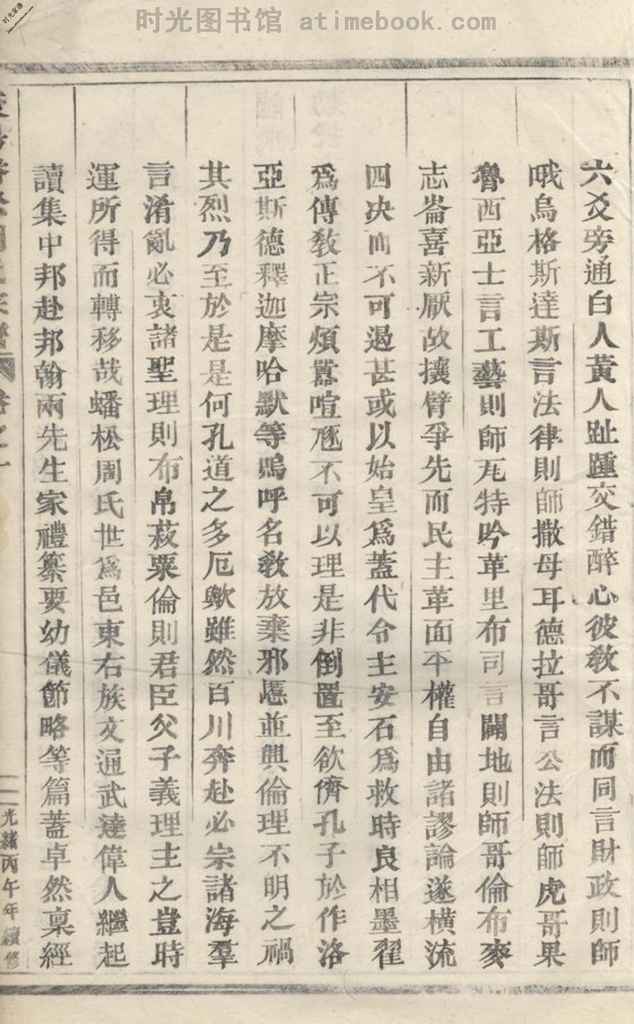 时光图书馆 atimebook.com
六爻旁通白人黃人趾踵交錯醉心彼敎不謀而同言財政則師
哦烏格斯達斯言法律則師撒母耳德拉哥言公法則師虎哥果
魯西亞士言工藝則師瓦特吟革里布司言闢地則師哥倫布麥
志崙喜新厭故攘臂爭先而民主革面平權自由諸謬論遂橫流
四决而不可遏甚或以始皇爲蓋代令主安石爲救時良相墨翟
爲傳敎正宗煩囂喧豗不可以理是非倒置至欲儕孔子於作洛
亞斯德釋迦摩哈默等嗚呼名敎放棄邪慝並興倫理不明之禍
其烈乃至於是是何孔道之多厄歟雖然百川齊赴必宗諸海羣
言淆亂必衷諸聖理則布帛菽粟倫則君臣父子義理主之豈時
運所得而轉移哉蟠松周氏世爲邑東右族文通武達偉人繼起
讀集中邦赴邦翰兩先生家禮纂要幼儀節略等篇蓋卓然稟經
卷之一
光緒丙午年續修